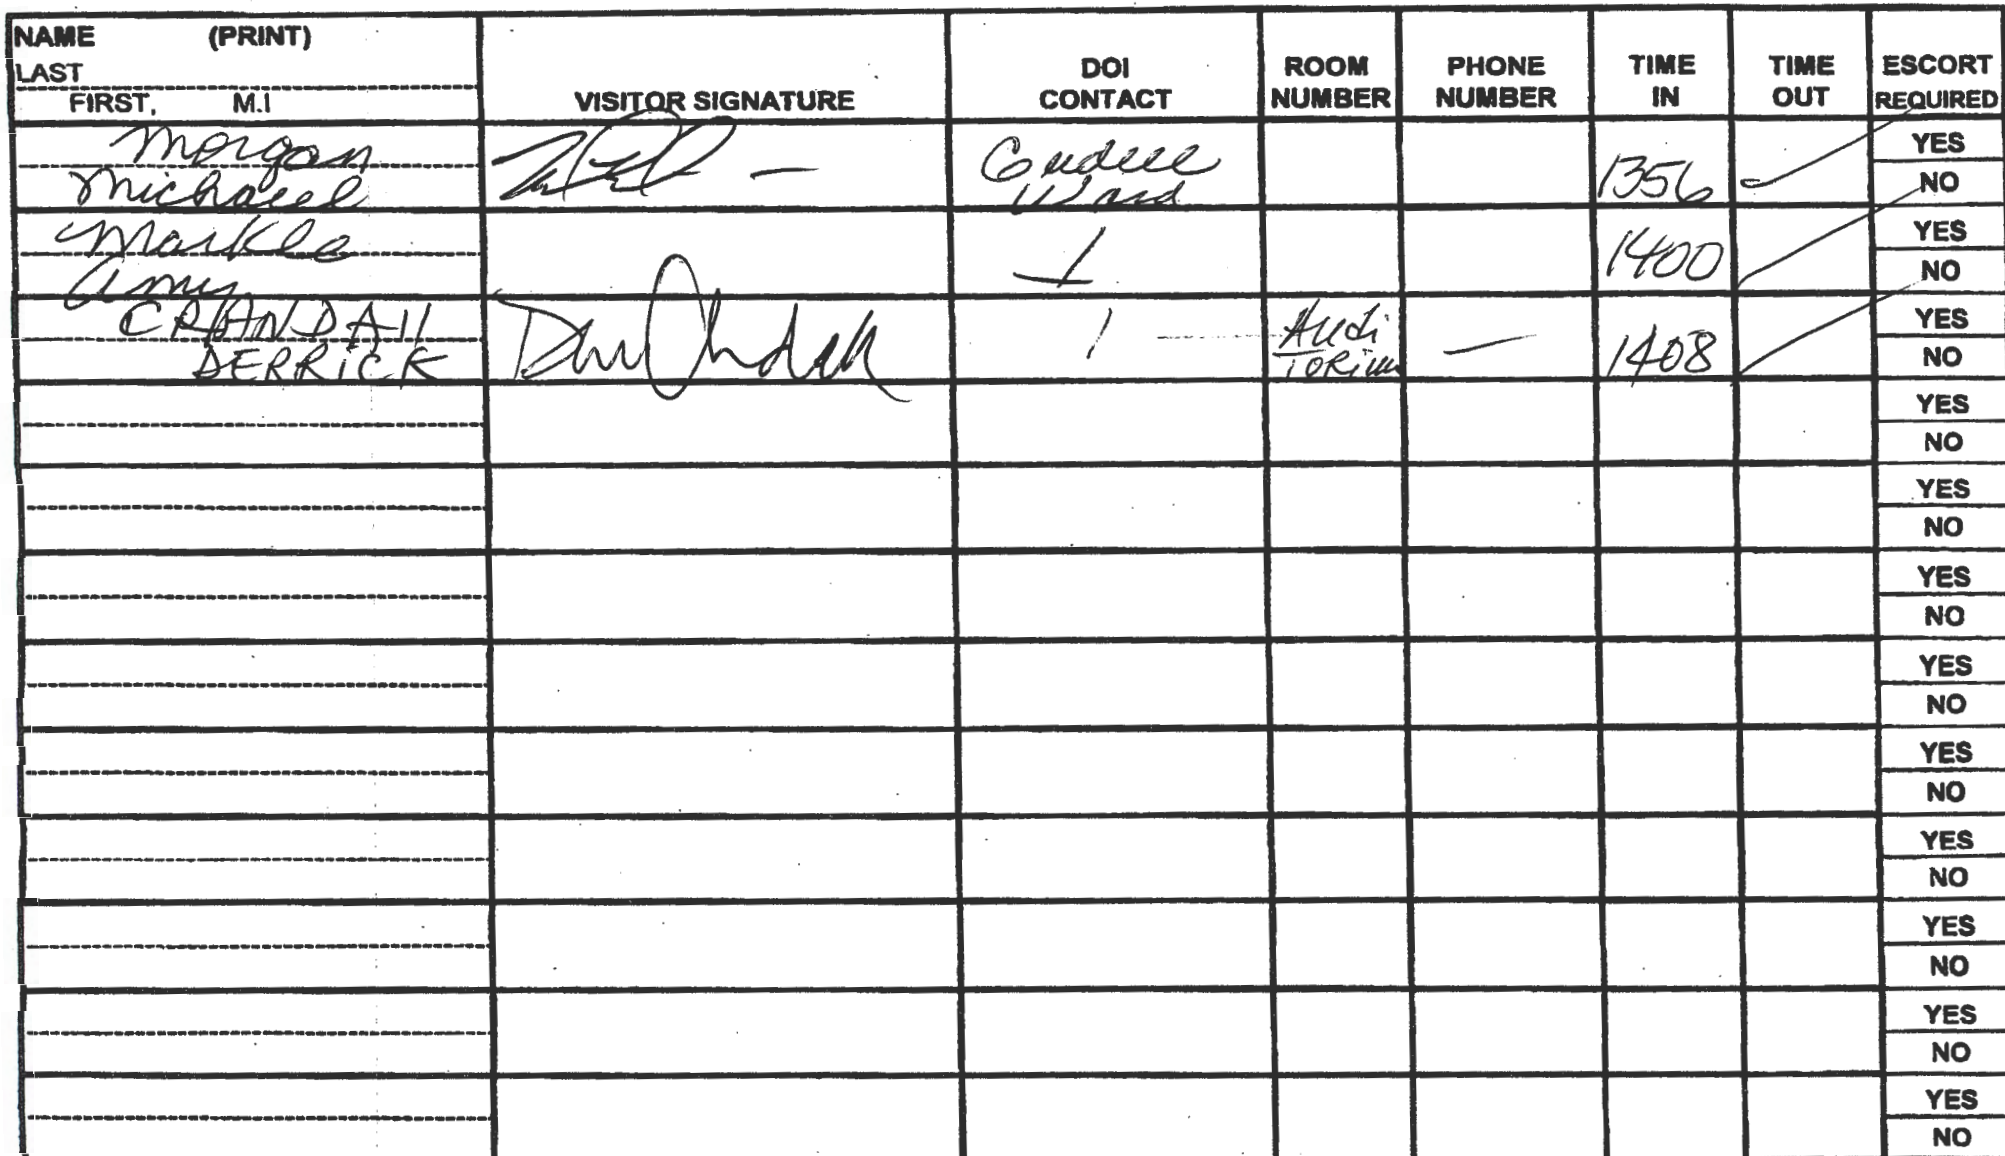 NAME (PRINT)
LAST
FIRST, M.I
VISITOR SIGNATURE
DOI
CONTACT
ROOM
NUMBER
PHONE
NUMBER
TIME
IN
TIME
OUT
ESCORT
REQUIRED
Morgan
Michael
Ward
1356
YES
NO
Markle
Amy
1400
YES
NO
CRANDAll
DERRICK
Audi
Torium
1408
YES
NO
YES
NO
YES
NO
YES
NO
YES
NO
YES
NO
YES
NO
YES
NO
YES
NO
YES
NO